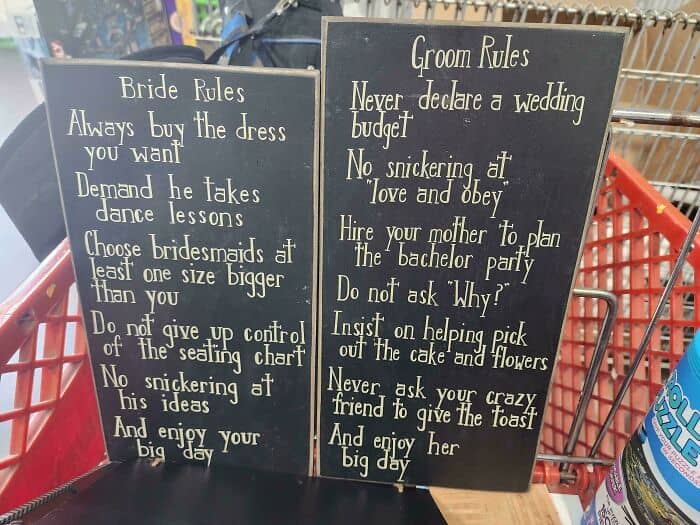 Bride Rules
Always buy the dress
you want
Demand he takes
dance lessons
Choose bridesmaids at
least one size bigger
than you
Do not give up control
of the seating chart
No snickering at
his ideas
And enjoy your
big day
Groom Rules
Never declare a wedding
budget
No snickering at
"love and obey"
Hire your mother to plan
the bachelor party
Do not ask "Why?"
Insist on helping pick
out the cake and flowers
Never ask your crazy
friend to give the toast
And enjoy her
big day